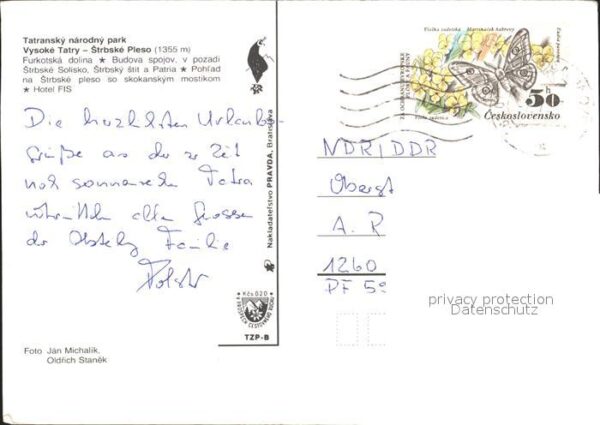 Tatranský národný park
Vysoké Tatry – Štrbské Pleso (1355 m)
Furkotská dolina ★ Budova spojov, v pozadí
Štrbské Solisko, Štrbský štít a Patria ★ Pohľad
na Štrbské pleso so skokanským mostíkom
★ Hotel FIS
Die herzlichsten Urlaubs-
grüße aus der zur Zeit
noch sonnenreichen Tatra
allen Grossen
der Familie
Nakladateľstvo PRAVDA, Bratislava
Kčs 0.20
TZP-B
Foto Ján Michalík,
Oldřich Staněk
50 h
Československo
NDR/DDR
Oberst
A. R
1260
PF 59
privacy protection
Datenschutz